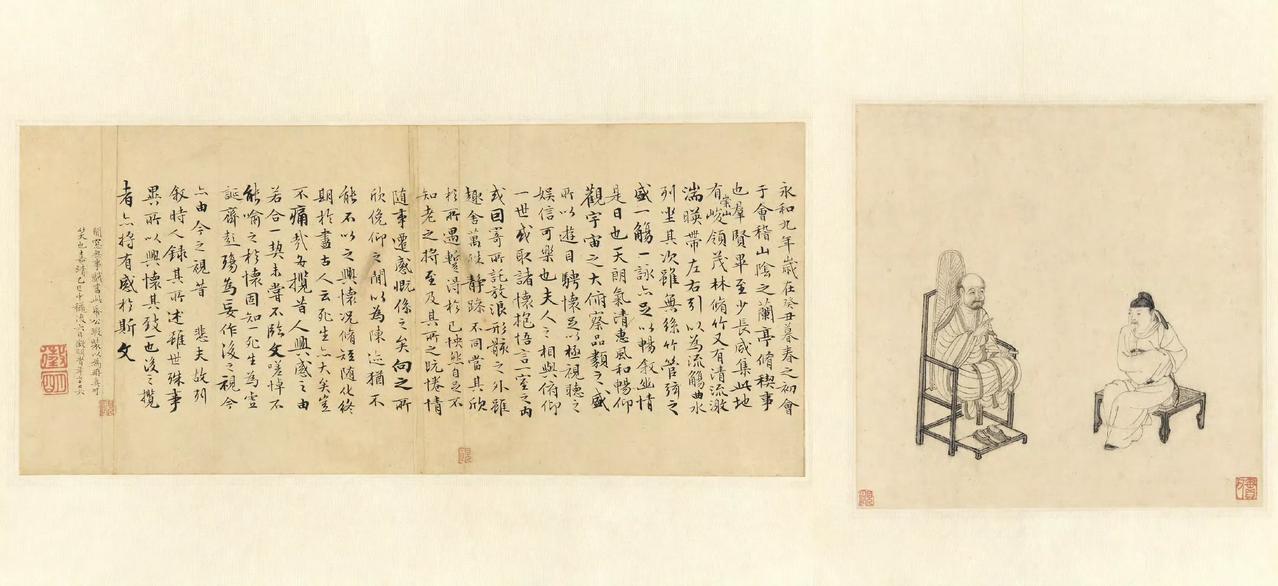 永和九年歲在癸丑暮春之初會
于會稽山陰之蘭亭脩稧事
也羣賢畢至少長咸集此地
有崇山峻領茂林脩竹又有清流激
湍暎帶左右引以為流觴曲水
列坐其次雖無絲竹管弦之
盛一觴一詠亦足以暢敘幽情
是日也天朗氣清惠風和暢仰
觀宇宙之大俯察品類之盛
所以遊目騁懷足以極視聽之
娛信可樂也夫人之相與俯仰
一世或取諸懷抱悟言一室之內
或因寄所託放浪形骸之外雖
趣舍萬殊靜躁不同當其欣
於所遇蹔得於己怏然自足不
知老之將至及其所之既惓情
隨事遷感慨係之矣向之所
欣俛仰之閒以為陳迹猶不
能不以之興懷況脩短隨化終
期於盡古人云死生亦大矣豈
不痛哉每攬昔人興感之由
若合一契未嘗不臨文嗟悼不
能喻之於懷固知一死生為虛
誕齊彭殤為妄作後之視今
亦由今之視昔 悲夫故列
敘時人錄其所述雖世殊事
異所以興懷其致一也後之攬
者亦將有感於斯文
笑也嘉靖
徵明